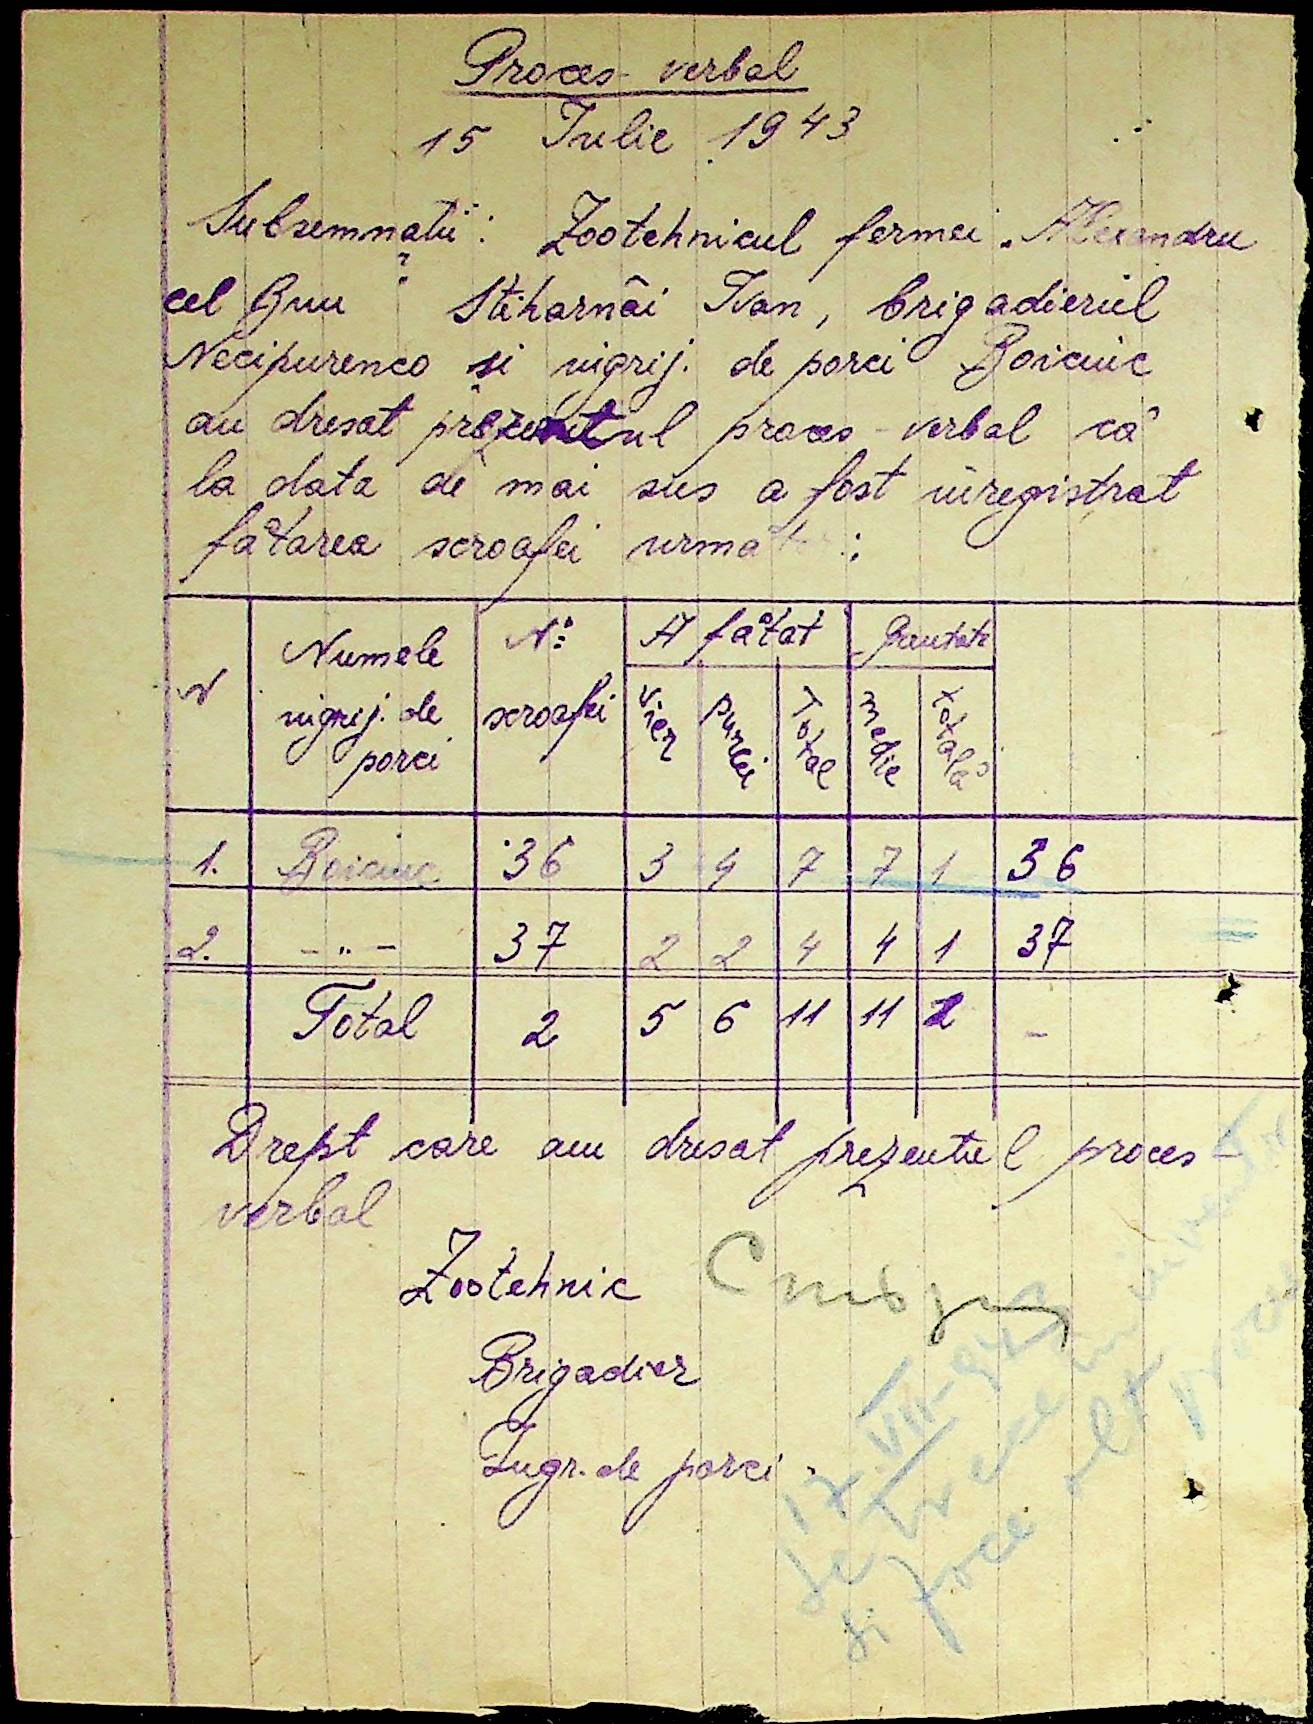 Proces-verbal
15 Iulie 1943
Subsemnatii: Zootehnicul fermei „Alexandru
cel Bun" Stiharnâi Ivan, brigadierul
Necipurenco si ingrij. de porci Boiciuc
au dresat prezentul proces-verbal că
la data de mai sus a fost inregistrat
fătarea scroafei urmator:
N Numele ingrij. de porci No scroafei A fătat Greutate
vier purcei Total medie totală
1. Boiciuc 36 3 4 7 7 1 36
2. -"- 37 2 2 4 4 1 37
Total 2 5 6 11 11 2 -
Drept care am dresat prezentul proces
verbal
Zootehnic
Brigadier
Ingr. de porci
17.VII-943
Se trece in inventar
si face alt proces